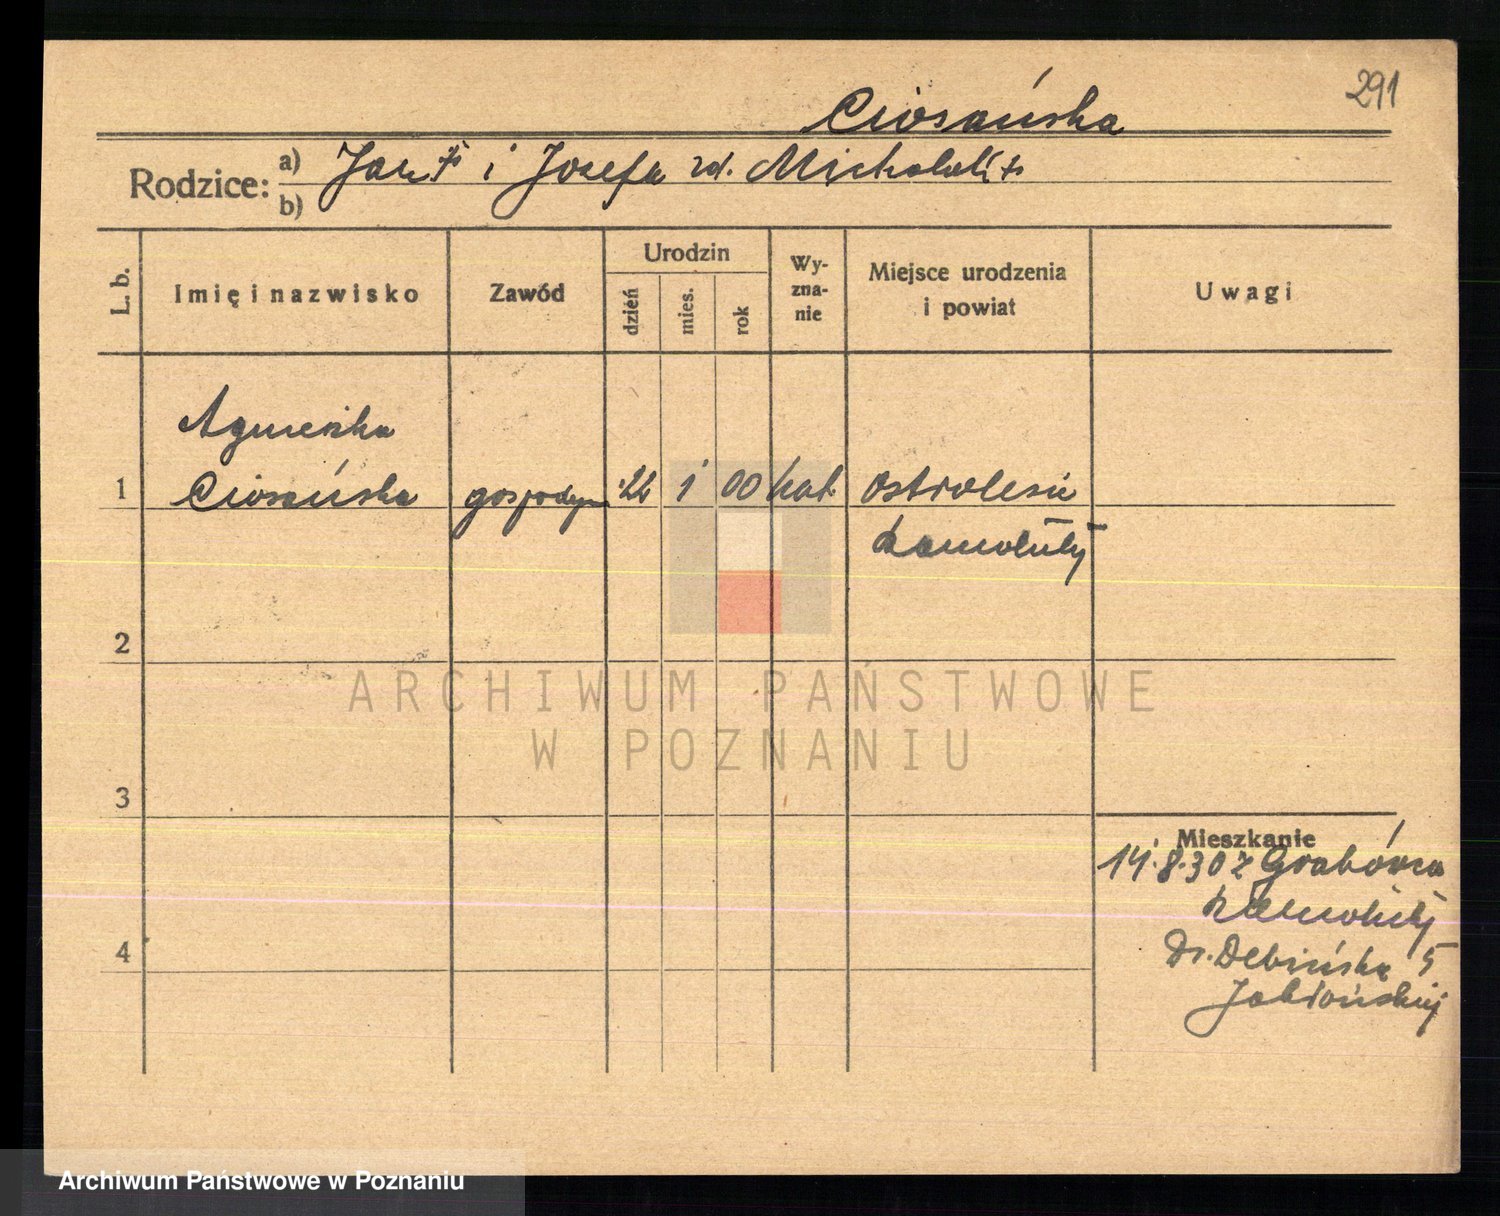 291
Ciosańska
Rodzice: a) Jan i Józefa zd. Michalak
b)
L. b.
Imię i nazwisko
Zawód
Urodzin
dzień
mies.
rok
Wy-
zna-
nie
Miejsce urodzenia
i powiat
Uwagi
Agnieszka
1 Ciosańska gospodyni 22 1 00 kat. Ostrolesie
2
3
4
Mieszkanie
14.8.30 z Grabówca
Dr. Dębińska 5
Jabłońskiej
ARCHIWUM PAŃSTWOWE
W POZNANIU
Archiwum Państwowe w Poznaniu